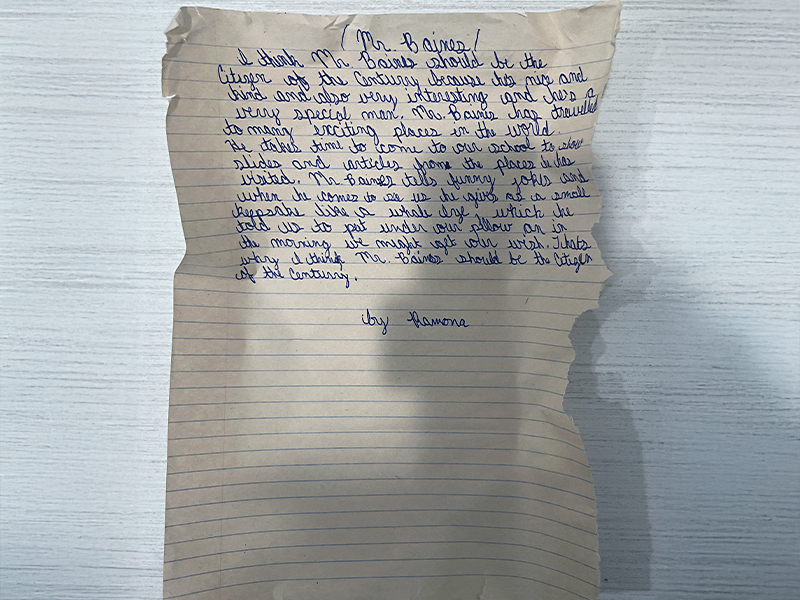 (Mr. Baines)
I think Mr. Baines should be the
Citizen of the Centurry because hes nice and
kind and also very interesting and he's a
very special man. Mr. Baines has travelled
to many exciting places in the world.
He takes time to come to our school to show
slides and articles from the places he has
visited. Mr Baines tells funny jokes and
when he comes to see us he gives us a small
keepsake like a whale eye which he
told us to put under our pllow an in
the morning we might get our wish. Thats
why I think Mr. Baines should be the Citizen
of the Centurry.
by Ramona